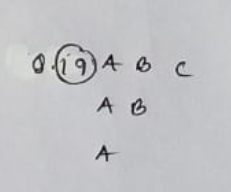 Q.19 A B C
A B
A